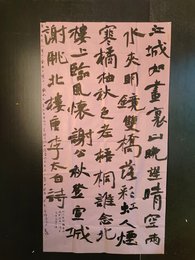 江城如畫裏山晚望晴空兩
水夾明鏡雙橋落彩虹人煙
寒橘柚秋色老梧桐誰念北
樓上臨風懷謝公秋登宣城
謝朓北樓唐李太白詩